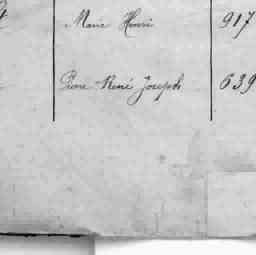 Marie Henri 917
Pierre René Joseph 639